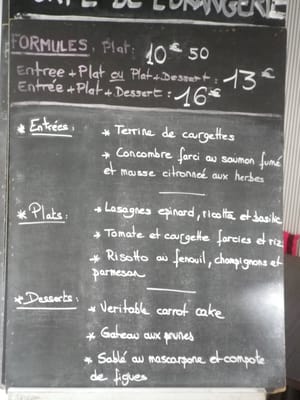 CAFÉ DE L'ORANGERIE
FORMULES : Plat : 10€50
Entree + Plat ou Plat + Dessert : 13€
Entrée + Plat + Dessert : 16€
* Entrées :
* Terrine de courgettes
* Concombre farci au saumon fumé
et mousse citronnée aux herbes
* Plats :
* Lasagnes epinard, ricotta et basilic
* Tomate et courgette farcies et riz
* Risotto au fenouil, champignons et
parmesan
* Desserts :
* Veritable carrot cake
* Gateau aux prunes
* Sablé au mascarpone et compote
de figues